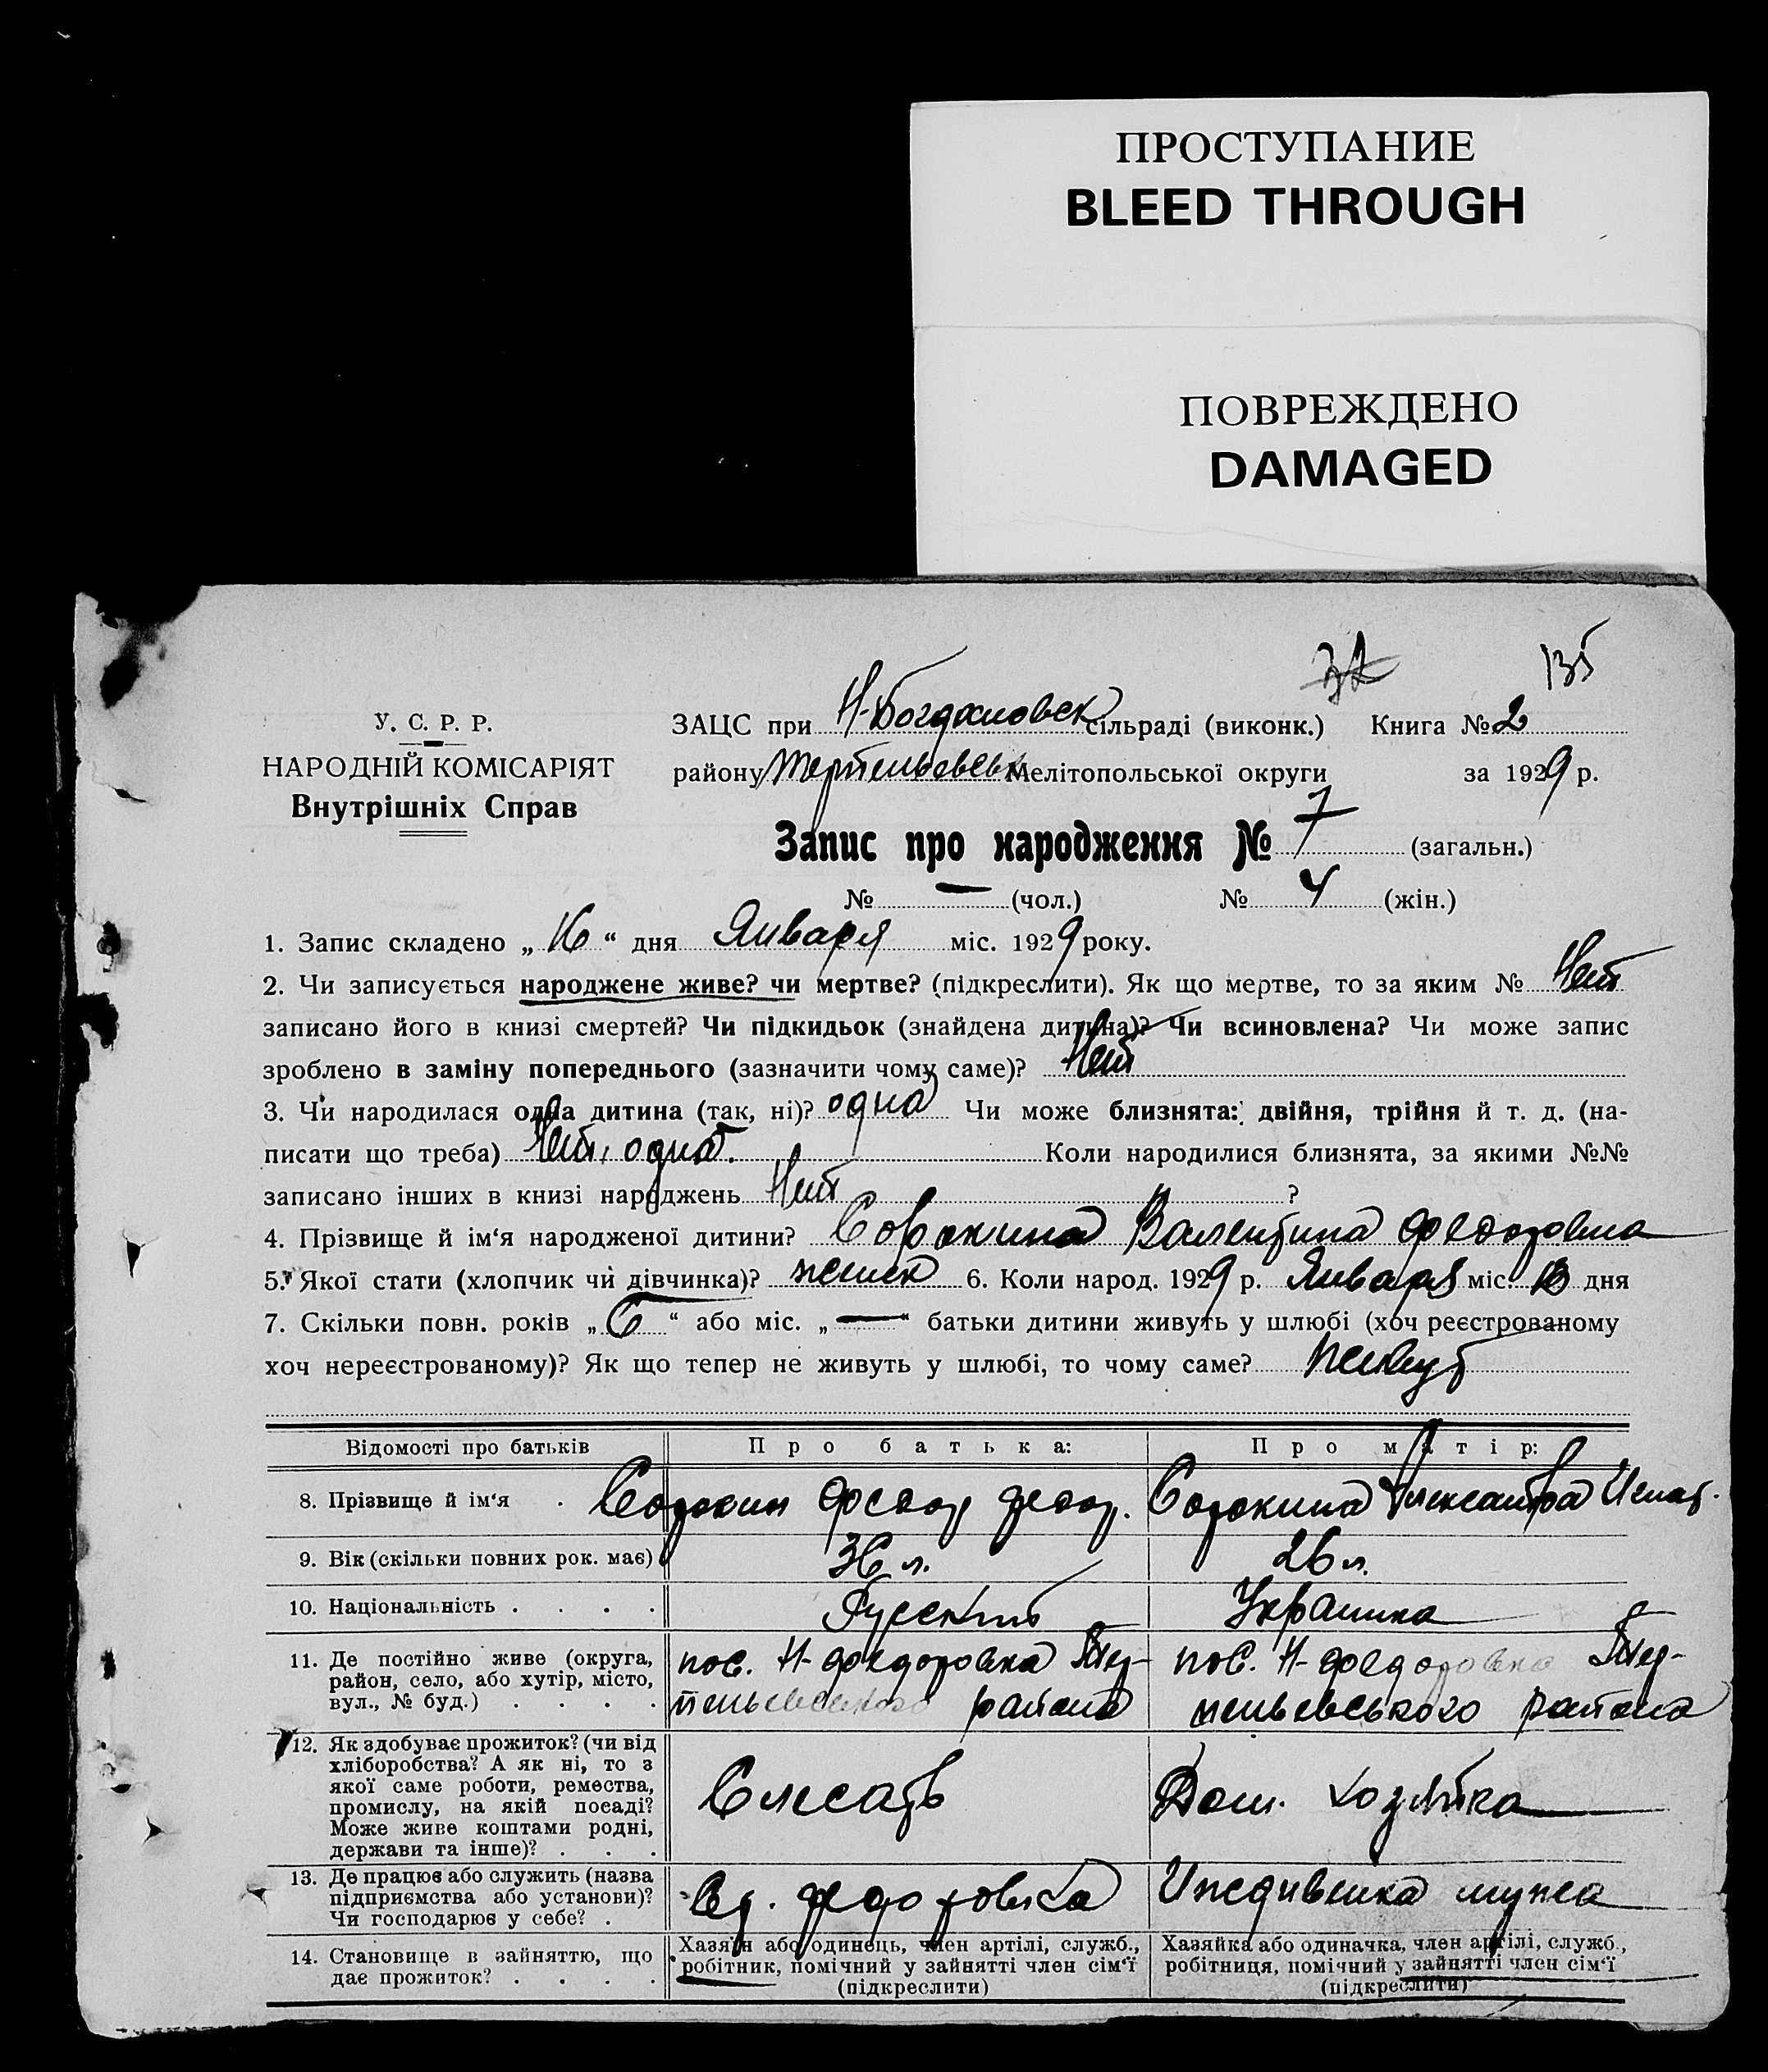 ПРОСТУПАНИЕ
BLEED THROUGH
ПОВРЕЖДЕНО
DAMAGED
32 135
У. С. Р. Р.
НАРОДНІЙ КОМІСАРІЯТ
Внутрішніх Справ
ЗАЦС при Н-Богдановск сільраді (виконк.) Книга № 2
району Терпеньевськ Мелітопольської округи за 1929 р.
Запис про народження № 7 (загальн.)
№ — (чол.) № 4 (жін.)
1. Запис складено „16“ дня Января міс. 1929 року.
2. Чи записується народжене живе? чи мертве? (підкреслити). Як що мертве, то за яким № Нет
записано його в книзі смертей? Чи підкидьок (знайдена дитина)? Чи всиновлена? Чи може запис
зроблено в заміну попереднього (зазначити чому саме)? Нет
3. Чи народилася одна дитина (так, ні)? одна Чи може близнята: двійня, трійня й т. д. (на-
писати що треба) Нет, одна. Коли народилися близнята, за якими №№
записано інших в книзі народжень Нет ?
4. Прізвище й ім‘я народженої дитини? Сорокина Валентина Федоровна
5. Якої стати (хлопчик чи дівчинка)? женск 6. Коли народ. 1929 р. Января міс. 13 дня
7. Скільки повн. років „6“ або міс. „—“ батьки дитини живуть у шлюбі (хоч реєстрованому
хоч нереєстрованому)? Як що тепер не живуть у шлюбі, то чому саме? живут
Відомості про батьків Про батька: Про матір:
8. Прізвище й ім‘я . Сорокин Федор Федор. Сорокина Александра Игнат.
9. Вік (скільки повних рок. має) 36 л. 26 л.
10. Національність . . . . Русский Украинка
11. Де постійно живе (округа, район, село, або хутір, місто, вул., № буд.) . . . .
пос. Н-Федоровка Тер-
пеньевского района
пос. Н-Федоровка Тер-
пеньевського района
12. Як здобуває прожиток? (чи від хліборобства? А як ні, то з якої саме роботи, ремества, промислу, на якій посаді? Може живе коштами родні, держави та інше)? . . .
Слесарь
Дом. хозяйка
13. Де працює або служить (назва підприємства або установи)? Чи господарює у себе? .
Федоровка
Иждивенка мужа
14. Становище в зайняттю, що дає прожиток? . . . .
Хазяїн або одинець, член артілі, служб., робітник, помічний у зайнятті член сім‘ї (підкреслити)
Хазяйка або одиначка, член артілі, служб., робітниця, помічний у зайнятті член сім‘ї (підкреслити)